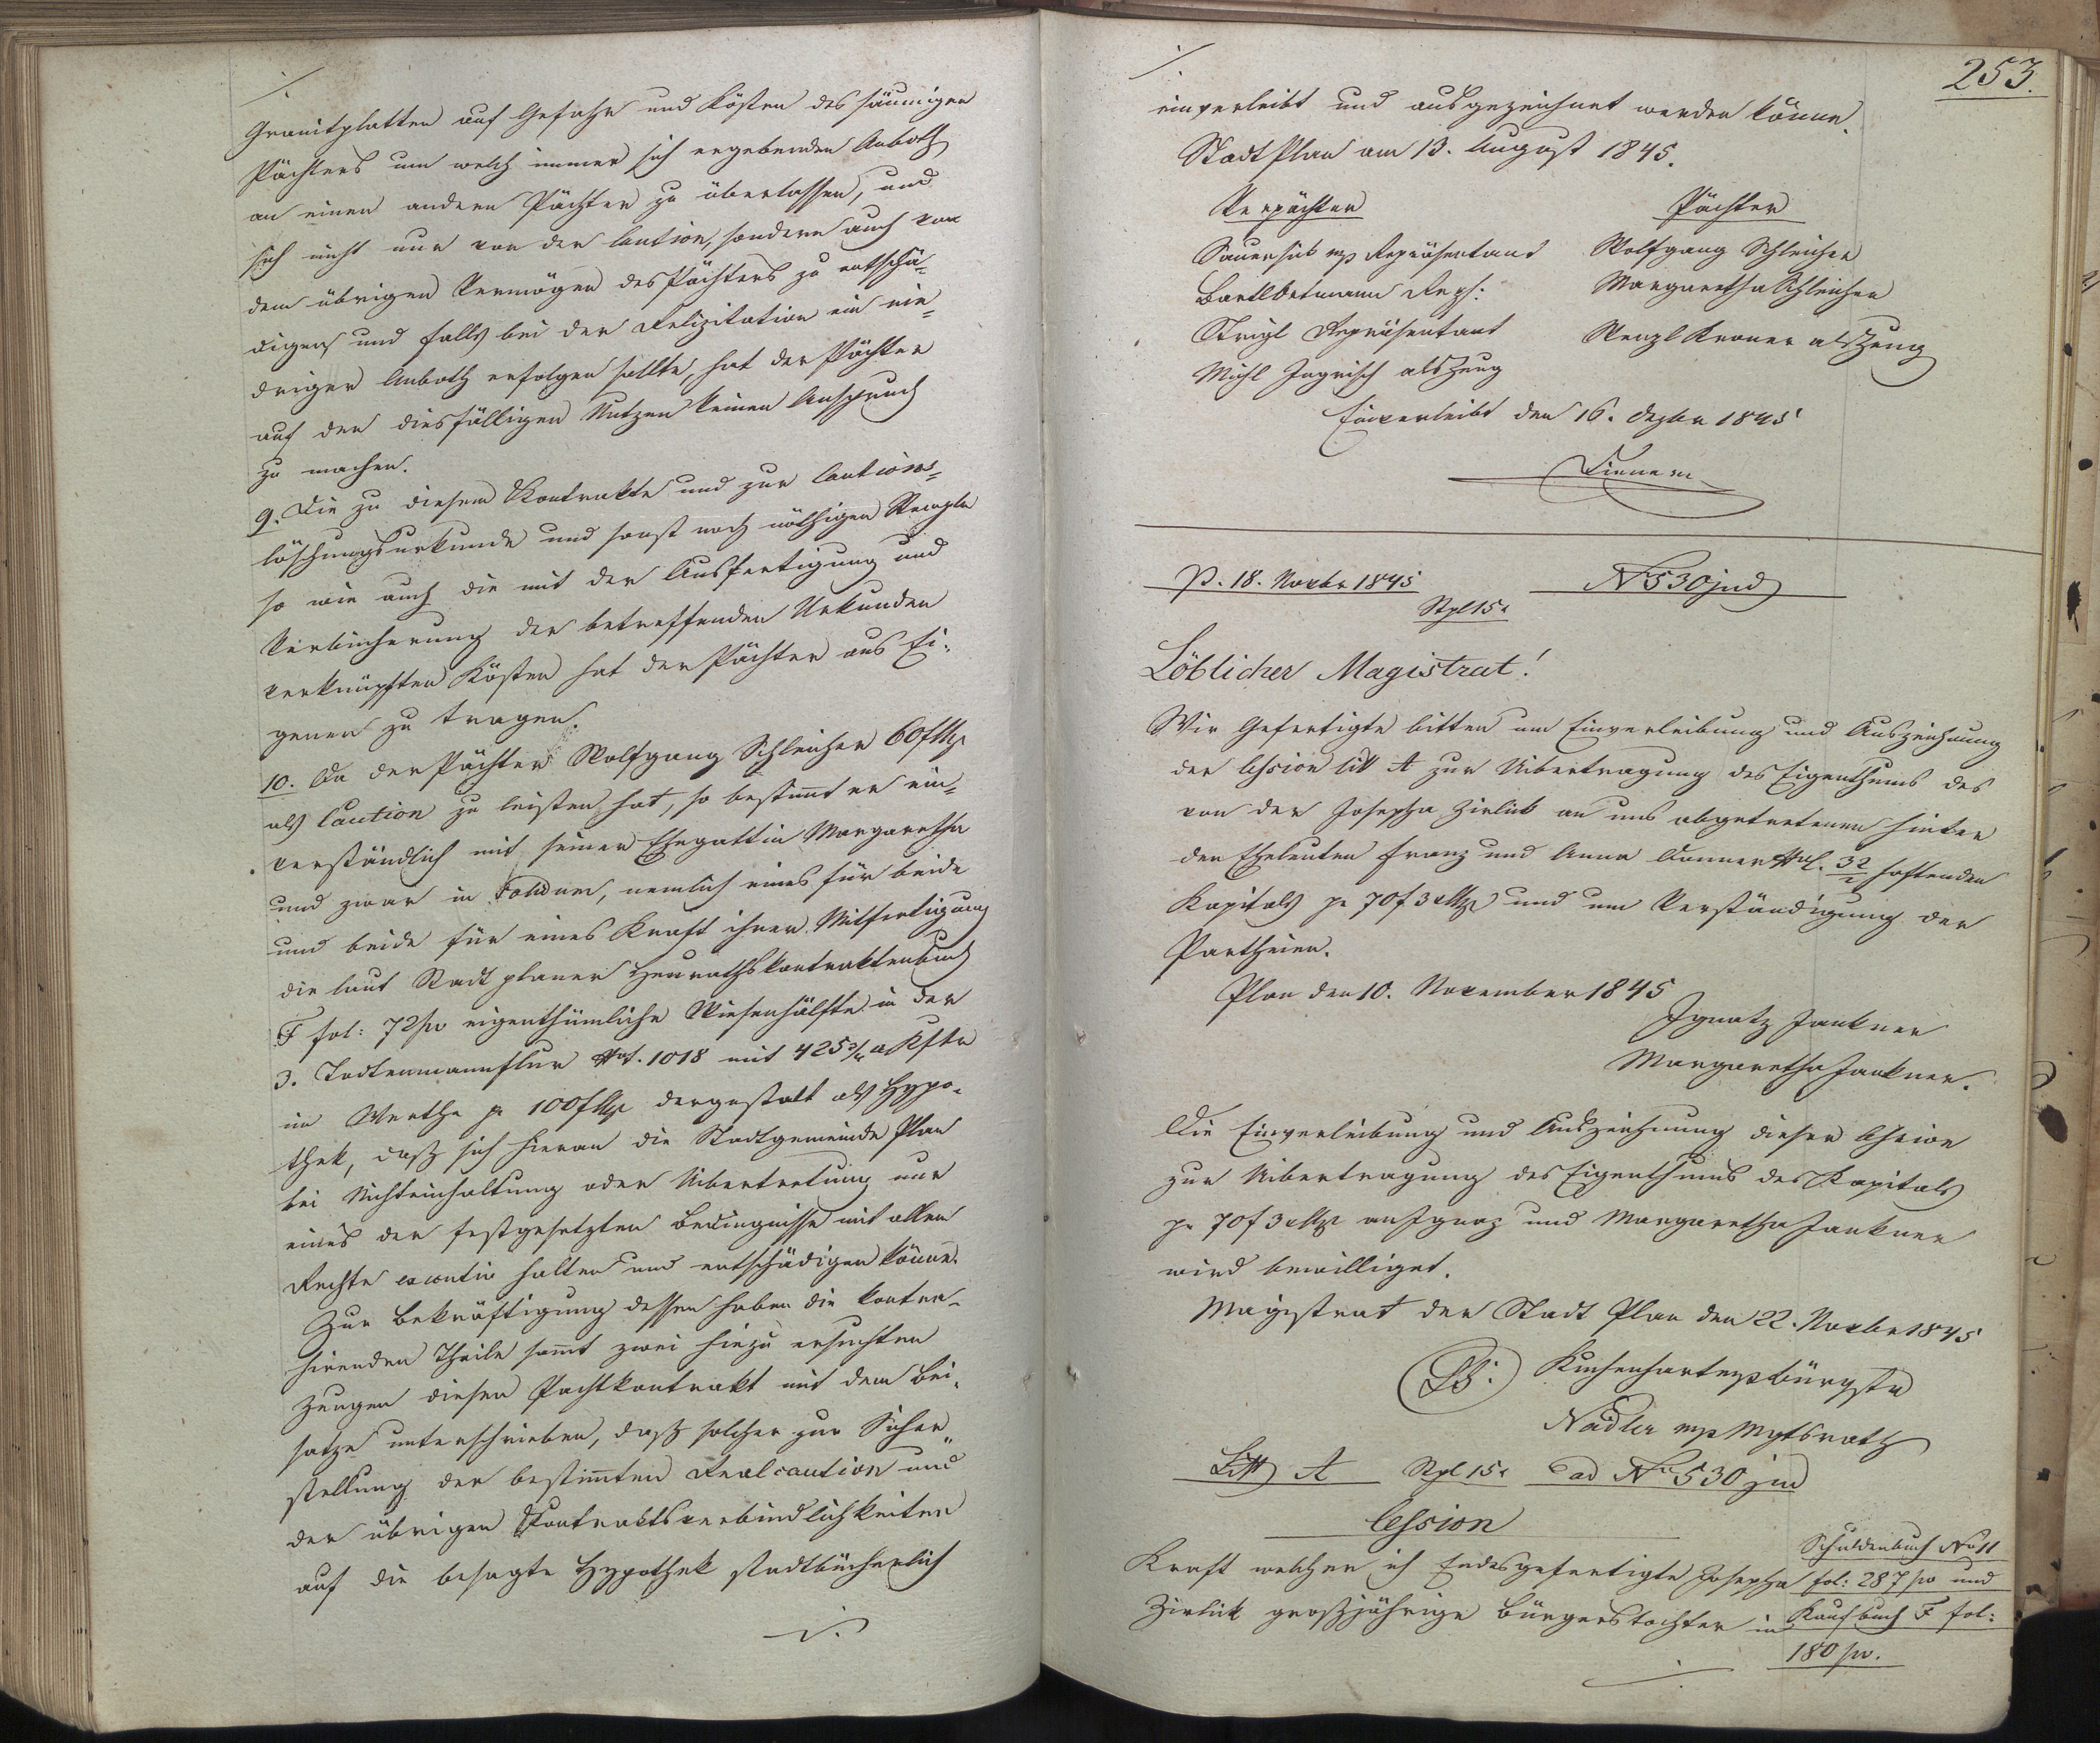 ./.
Granitplatten auf Gefahr und Kösten des säumigen
Pächters um welch immer sich ergebenden Anboth
an einen andern Pächter zu überlassen, und
sich nicht nur von der Caution, sondern auch von
dem übrigen Vermögen des Pächters zu entschä=
digen und falls bei der Relizitation ein nie=
driger Anboth erfolgen sollte, hat der Pächter
auf den diesfälligen Nutzen keinen Anspruch
zu machen.
9. Die zu diesem Kontrakte und zur Cautions=
löschungsurkunde und sonst noch nöthigen Stempln
so wie auch die mit der Ausfertigung und
Verbücherung der betreffenden Urkunden
verknüpften Kösten hat der Pächter aus Ei=
genen zu tragen.
10. Da der Pächter Wolfgang Schleicher 60 f Mz
als Caution zu leisten hat, so bestimt er ein=
verständlich mit seiner Ehegattin Margaretha
und zwar in solidum, nemlich eines für beide
und beide für eines Kraft ihrer Mitfertigung
die laut Stadt planer Heurathskontraktenbuch
F fol: 72 eigenthümliche Wiesenhälfte in der
3. Todtenmannflur 1018 mit 425 Kftr
im Werthe pr 100 f Mz dergestalt als Hypo=
thek, daß sich hieran die Stadtgemeinde Plan
bei Nichteinhaltung oder Uibertretung nur
eines der festgesetzten Bedingnisse mit allem
Rechte executiv halten und entschädigen könne.
Zur Bekräftigung dessen haben die kontra=
hirenden Theile samt zwei hiezu ersuchten
Zeugen diesen Pachtkontrakt mit dem Bei=
satze unterschrieben, daß solcher zur Sicher=
stellung der bestimten Realcaution und
der übrigen Kontraktsverbindlichkeiten
auf die besagte Hypothek stadtbücherlich
./.
253.
./.
einverleibt und ausgezeichnet werden könne.
Stadt Plan am 13. August 1845.
Verpächter Pächter
mp Repräsentant Wolfgang Schleicher
Reps: Margaretha Schleicher
Repräsentant Wenzl Kroner als Zeug
Michl als Zeug
Einverleibt den 16. Dezbr 1845
p. 18. Novbr 1845 No 530 jud
Stpl 15 x
Löblicher Magistrat!
Wir Gefertigte bitten um Einverleibung und Auszeichnung
der Cession litt A zur Uibertragung des Eigenthums des
von der Josepha Zirlik an uns abgetretenen hinter
den Eheleuten Franz und Anna Donner 32/2 haftenden
Kapitals pr 70 f 3 x Mz und um Verständigung der
Partheien.
Plan den 10. November 1845
Ignatz Jankner
Margaretha Jankner.
Die Einverleibung und Auszeichnung dieser Cession
zur Uibertragung des Eigenthums des Kapitals
pr 70 f 3 x Mz an Ignaz und Margaretha Jankner
wird bewilliget.
Magistrat der Stadt Plan den 22. Novbr 1845
LS: mp Bürgstr
Nadler mp Mgtsrath
Litt A Stpl 15 x ad No 530 jud
Cession
Kraft welcher ich Endesgefertigte Josepha
Zirlik großjährige Bürgerstochter in
Schuldenbuch No 11
fol: 287 und
Kaufbuch F fol:
180
./.